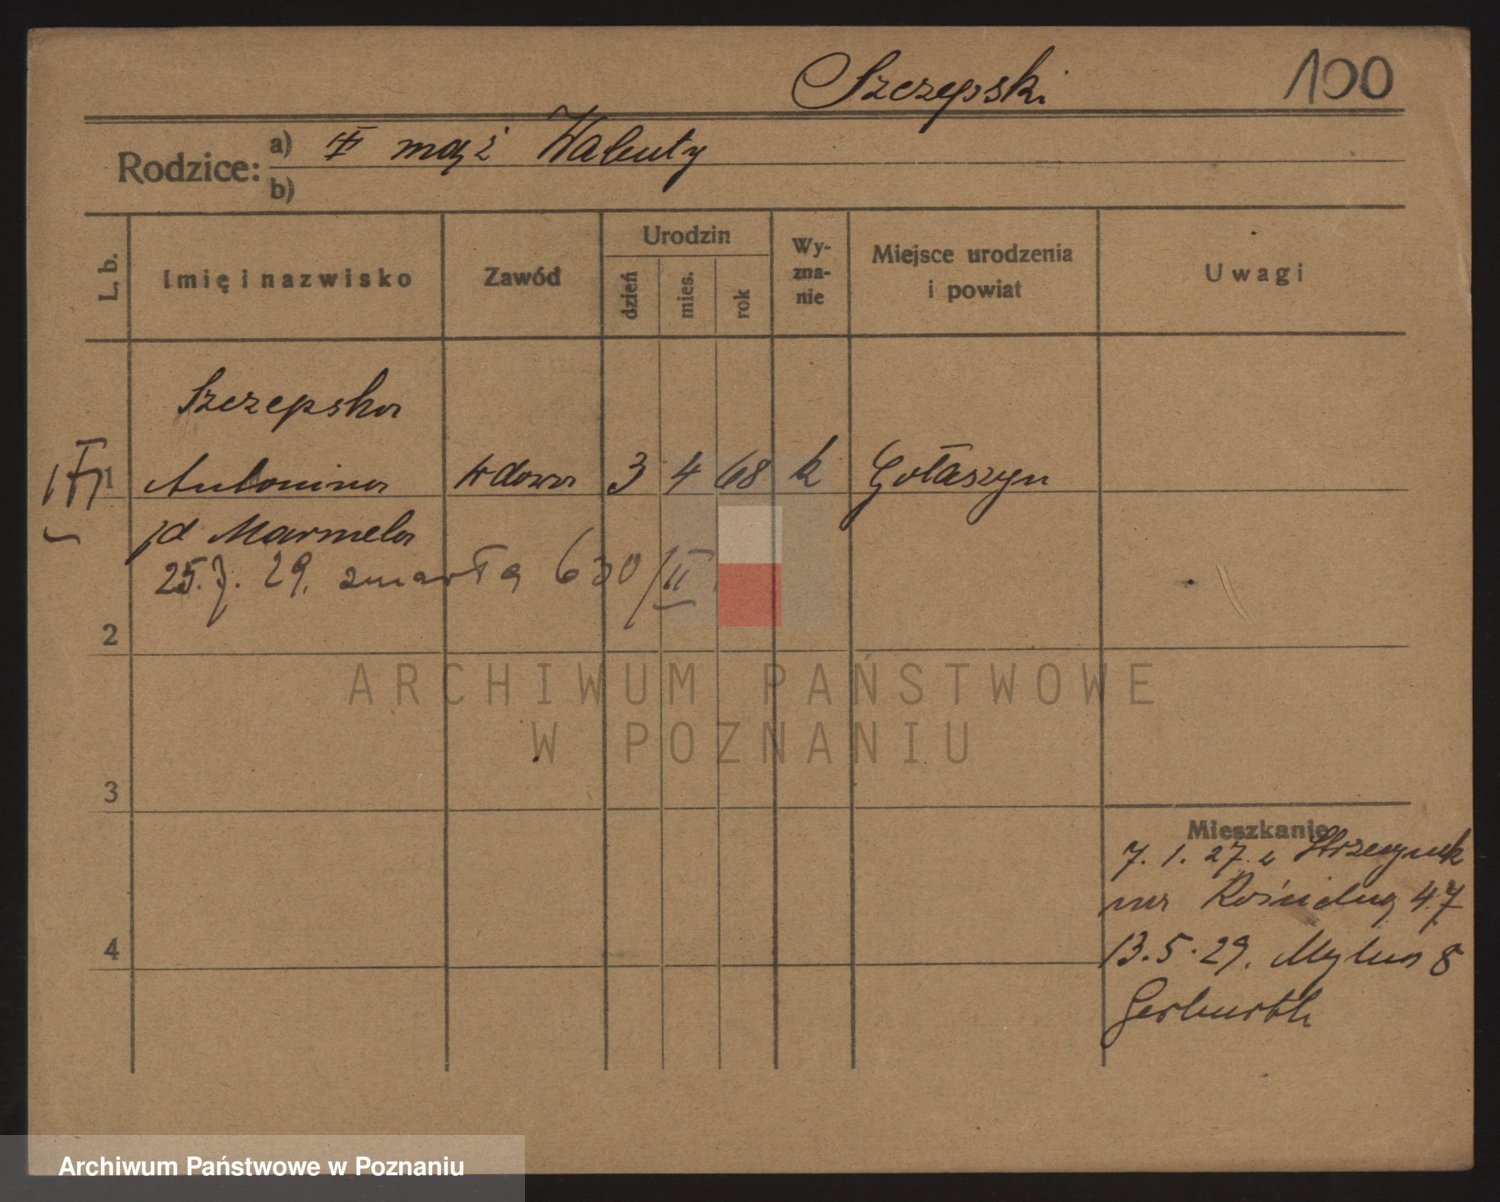 Szczepski 100
Rodzice: a) mąż Walenty
b)
L. b. Imię i nazwisko Zawód Urodzin dzień mies. rok Wyznanie Miejsce urodzenia i powiat Uwagi
Szczepska
1 Antonina wdowa 3 4 68 k Gołaszyn
Marmela
25.7.29. zmarła 630/II
2
3
4
Mieszkanie
7.1.27. 47
13.5.29. Mylna 8
ARCHIWUM PAŃSTWOWE
W POZNANIU
Archiwum Państwowe w Poznaniu